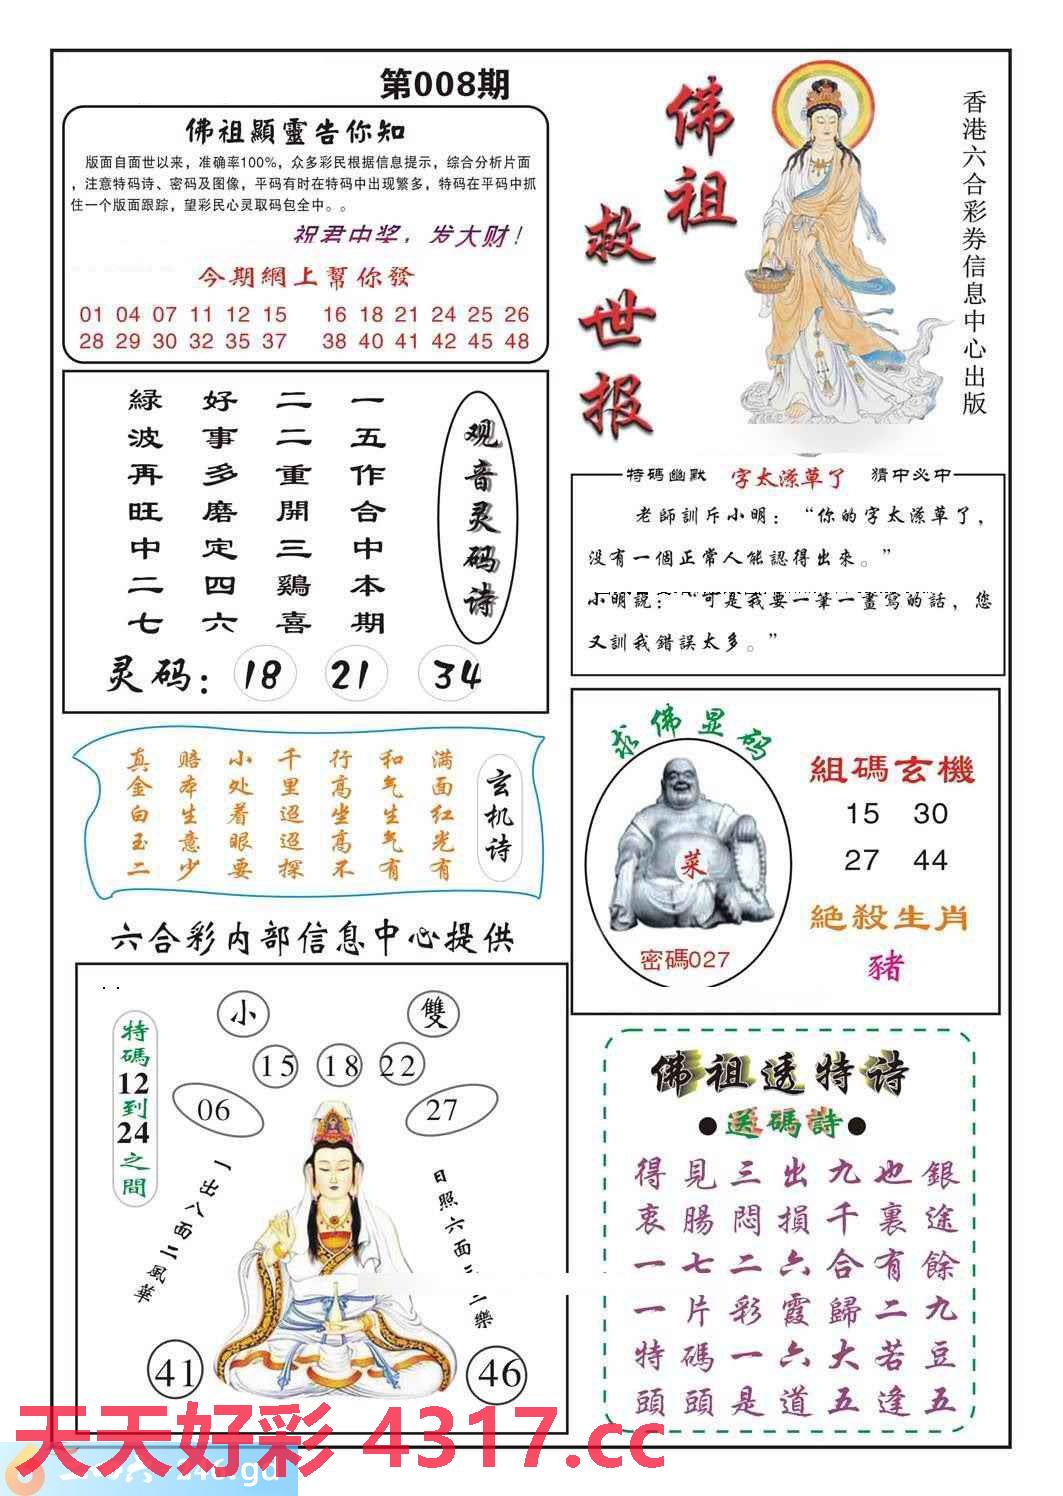 第008期
佛祖顯靈告你知
版面自面世以来，准确率100%，众多彩民根据信息提示，综合分析片面
，注意特码诗、密码及图像，平码有时在特码中出现繁多，特码在平码中抓
住一个版面跟踪，望彩民心灵取码包全中。。
祝君中奖，发大财！
今期網上幫你發
01 04 07 11 12 15 16 18 21 24 25 26
28 29 30 32 35 37 38 40 41 42 45 48
佛祖
救世报
香港六合彩券信息中心出版
观音灵码诗
一五作合中本期
二二重開三鷄喜
好事多磨定四六
緑波再旺中二七
灵码：18 21 34
特碼幽默 字太潦草了 猜中必中
老師訓斥小明：“你的字太潦草了，
没有一個正常人能認得出來。”
小明說：“可是我要一筆一畫寫的話，您
又訓我錯誤太多。”
玄机诗
满面红光有
和气生气有
行高坐高不
千里迢迢探
小处着眼要
赔本生意少
真金白玉二
求佛显码
菜
密碼027
組碼玄機
15 30
27 44
絶殺生肖
豬
六合彩内部信息中心提供
特碼12到24之間
小
雙
15 18 22
06
27
一出八面二風華
日照六面
二樂
41
46
佛祖透特诗
●送碼詩●
得見三出九也銀
衷腸悶損千裏途
一七二六合有餘
一片彩霞歸二九
特碼一六大若豆
頭頭是道五逢五
天天好彩 4317.cc
246.gd